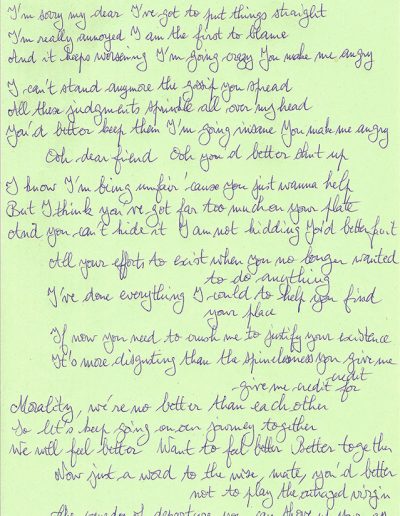 I'm sorry my dear I've got to put things straight
I'm really annoyed I am the first to blame
And it keeps worsening I'm going crazy You make me angry
I can't stand anymore the gossip you spread
All these judgments sprinkle all over my head
You'd better keep them I'm going insane You make me angry
Ooh dear friend Ooh you'd better shut up
I know I'm being unfair 'cause you just wanna help
But I think you've got far too much on your plate
And you can't hide it I am not kidding You'd better quit
All your efforts to exist when you no longer wanted
to do anything
I've done everything I could to help you find
your place
If now you need to crush me to justify your existence
It's more disgusting than the spinelessness you give me
credit
give me credit for
Morality, we're no better than each other
So let's keep going on our journey together
We will feel better Want to feel better Better together
Now just a word to the wise, mate, you'd better
not to play the outraged virgin
The of departure you can shove it your